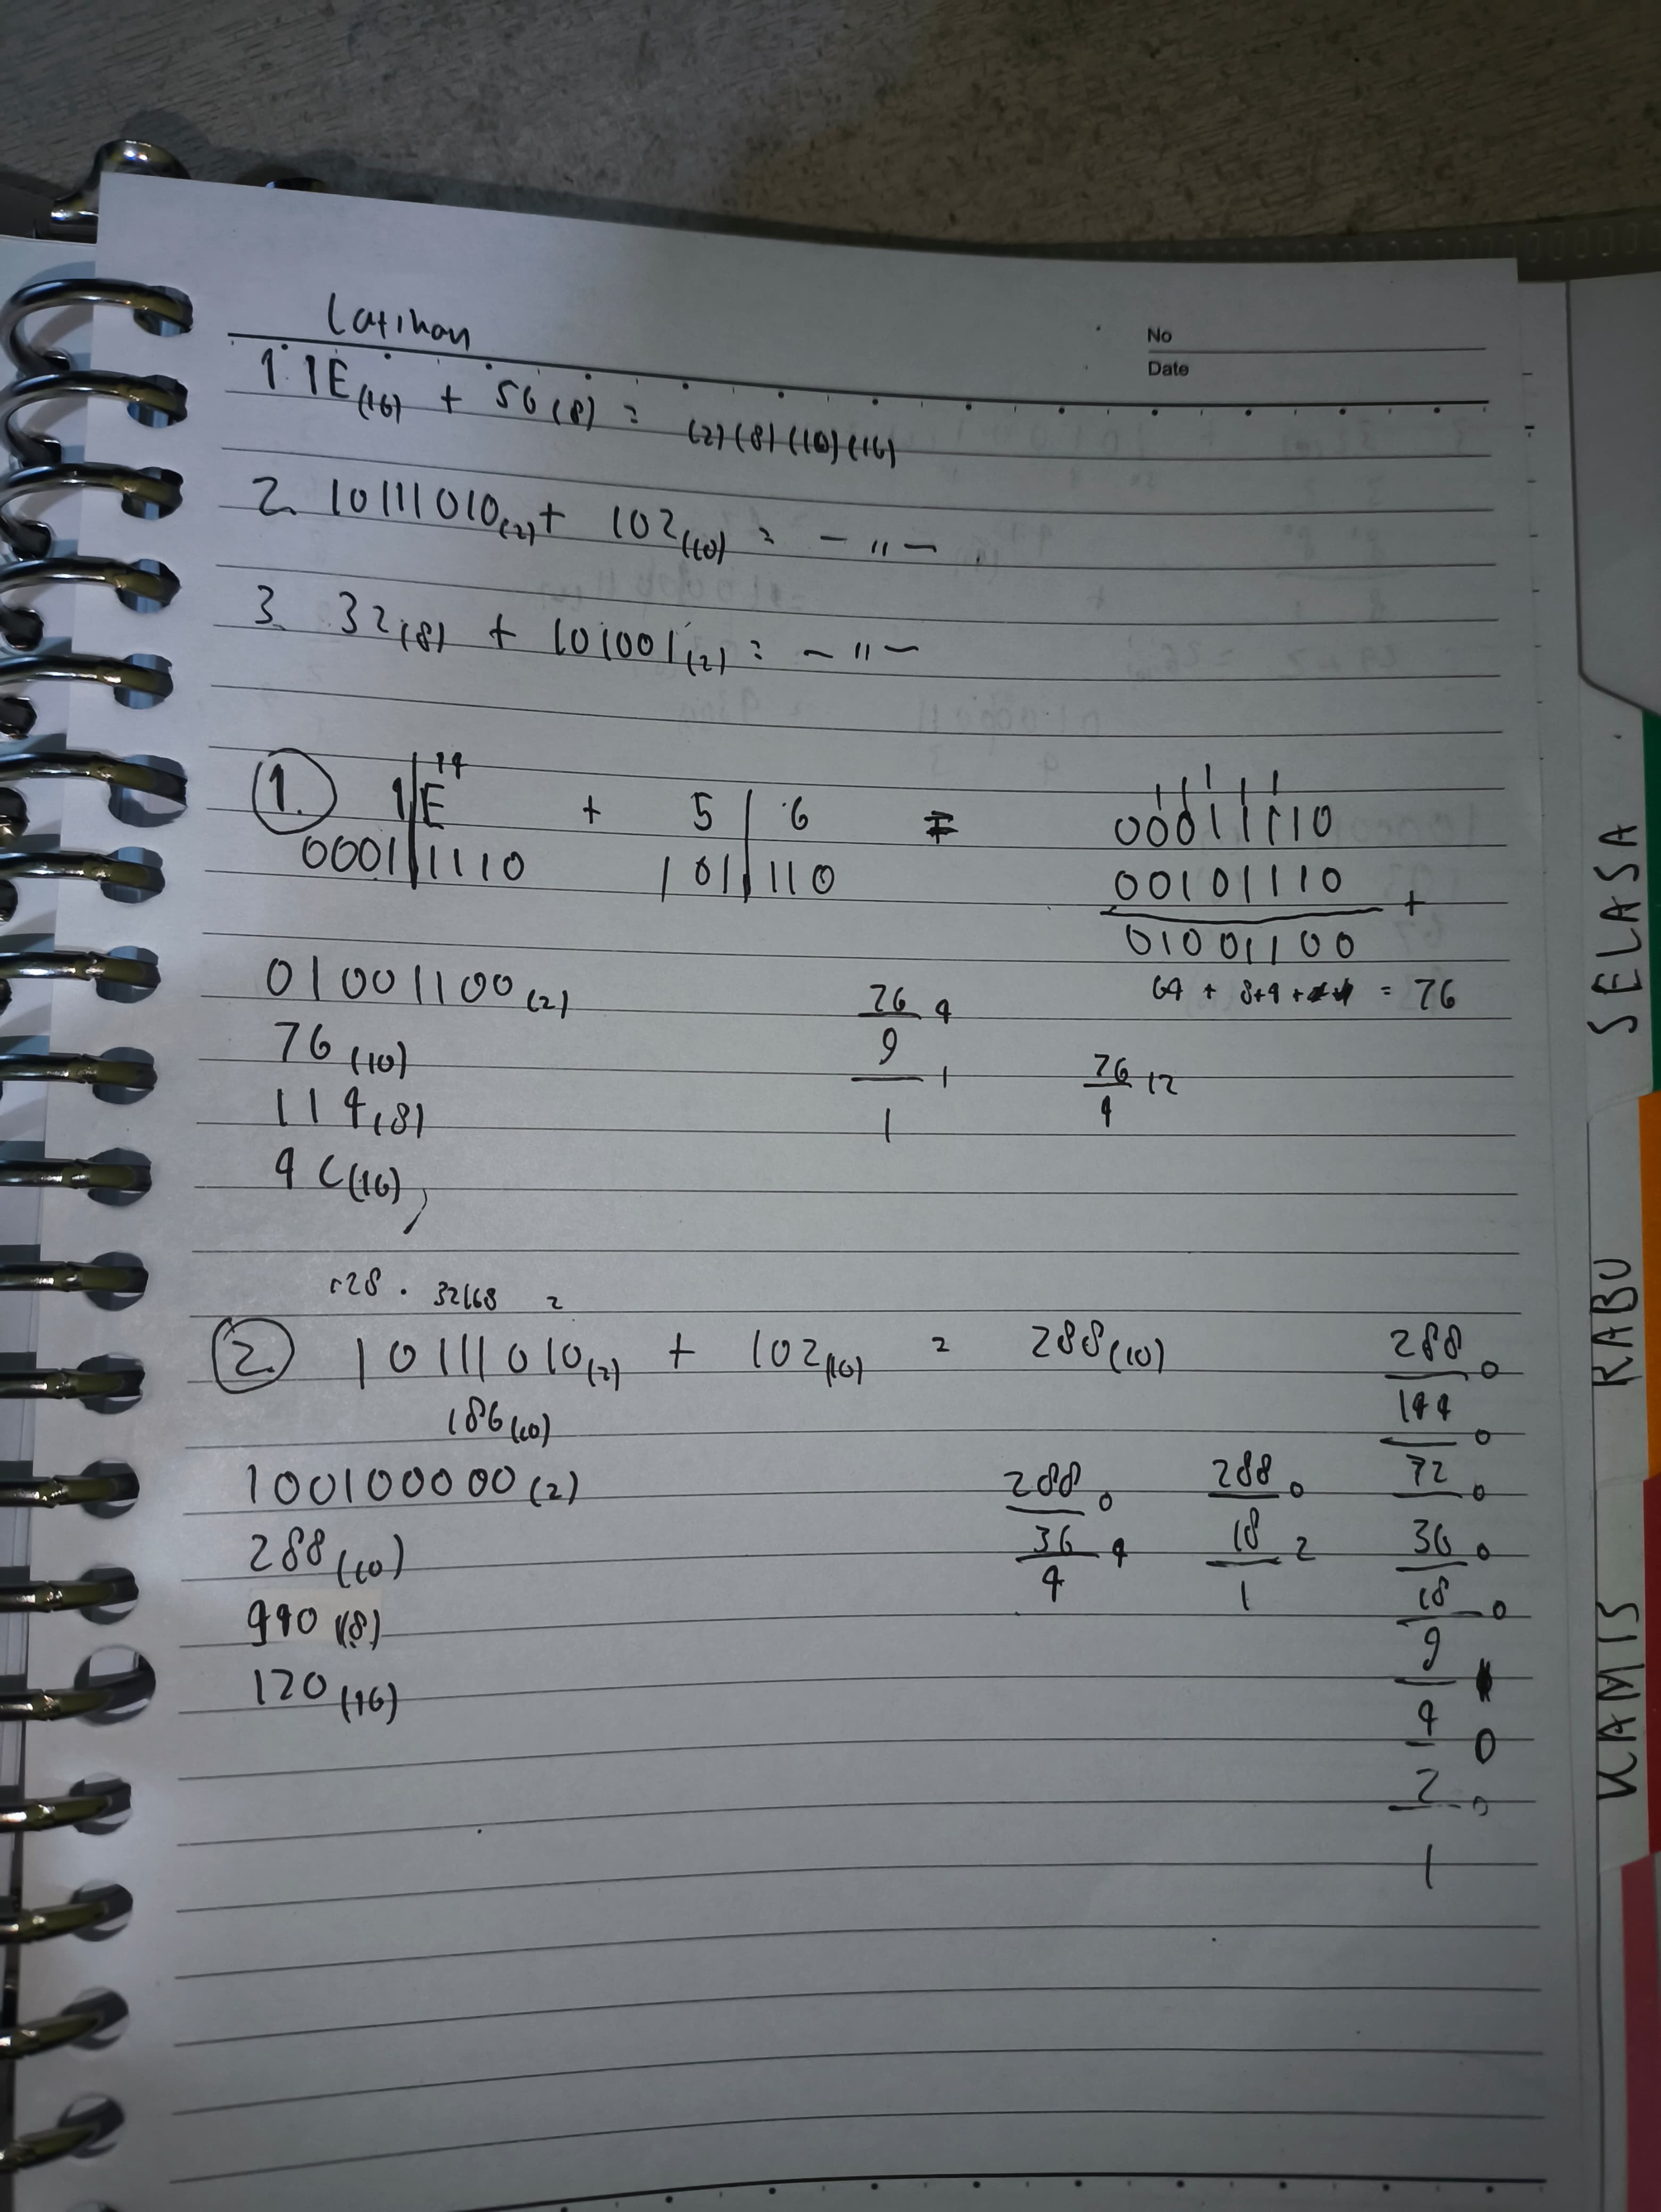 Latihan
No
Date
1. 1E(16) + 56(8) = (2)(8)(10)(16)
2. 10111010(2) + 102(10) = - " -
3. 32(8) + 101001(2) = - " -
1. 1|E 14 + 5|6 =
0001|1110 101|110
1 1 1 1 1
00011110
00101110 +
01001100
64 + 8+4 = 76
01001100(2)
76(10)
114(8)
4C(16)
76 4
9 1
1
76 12
4
128 . 32 16 8 2
2. 10111010(2) + 102(10) = 288(10)
186(10)
100100000(2)
288(10)
440(8)
120(16)
288 0
36 4
4
288 0
18 2
1
288 0
144 0
72 0
36 0
18 0
9 1
4 0
2 0
1
SELASA
RABU
KAMIS